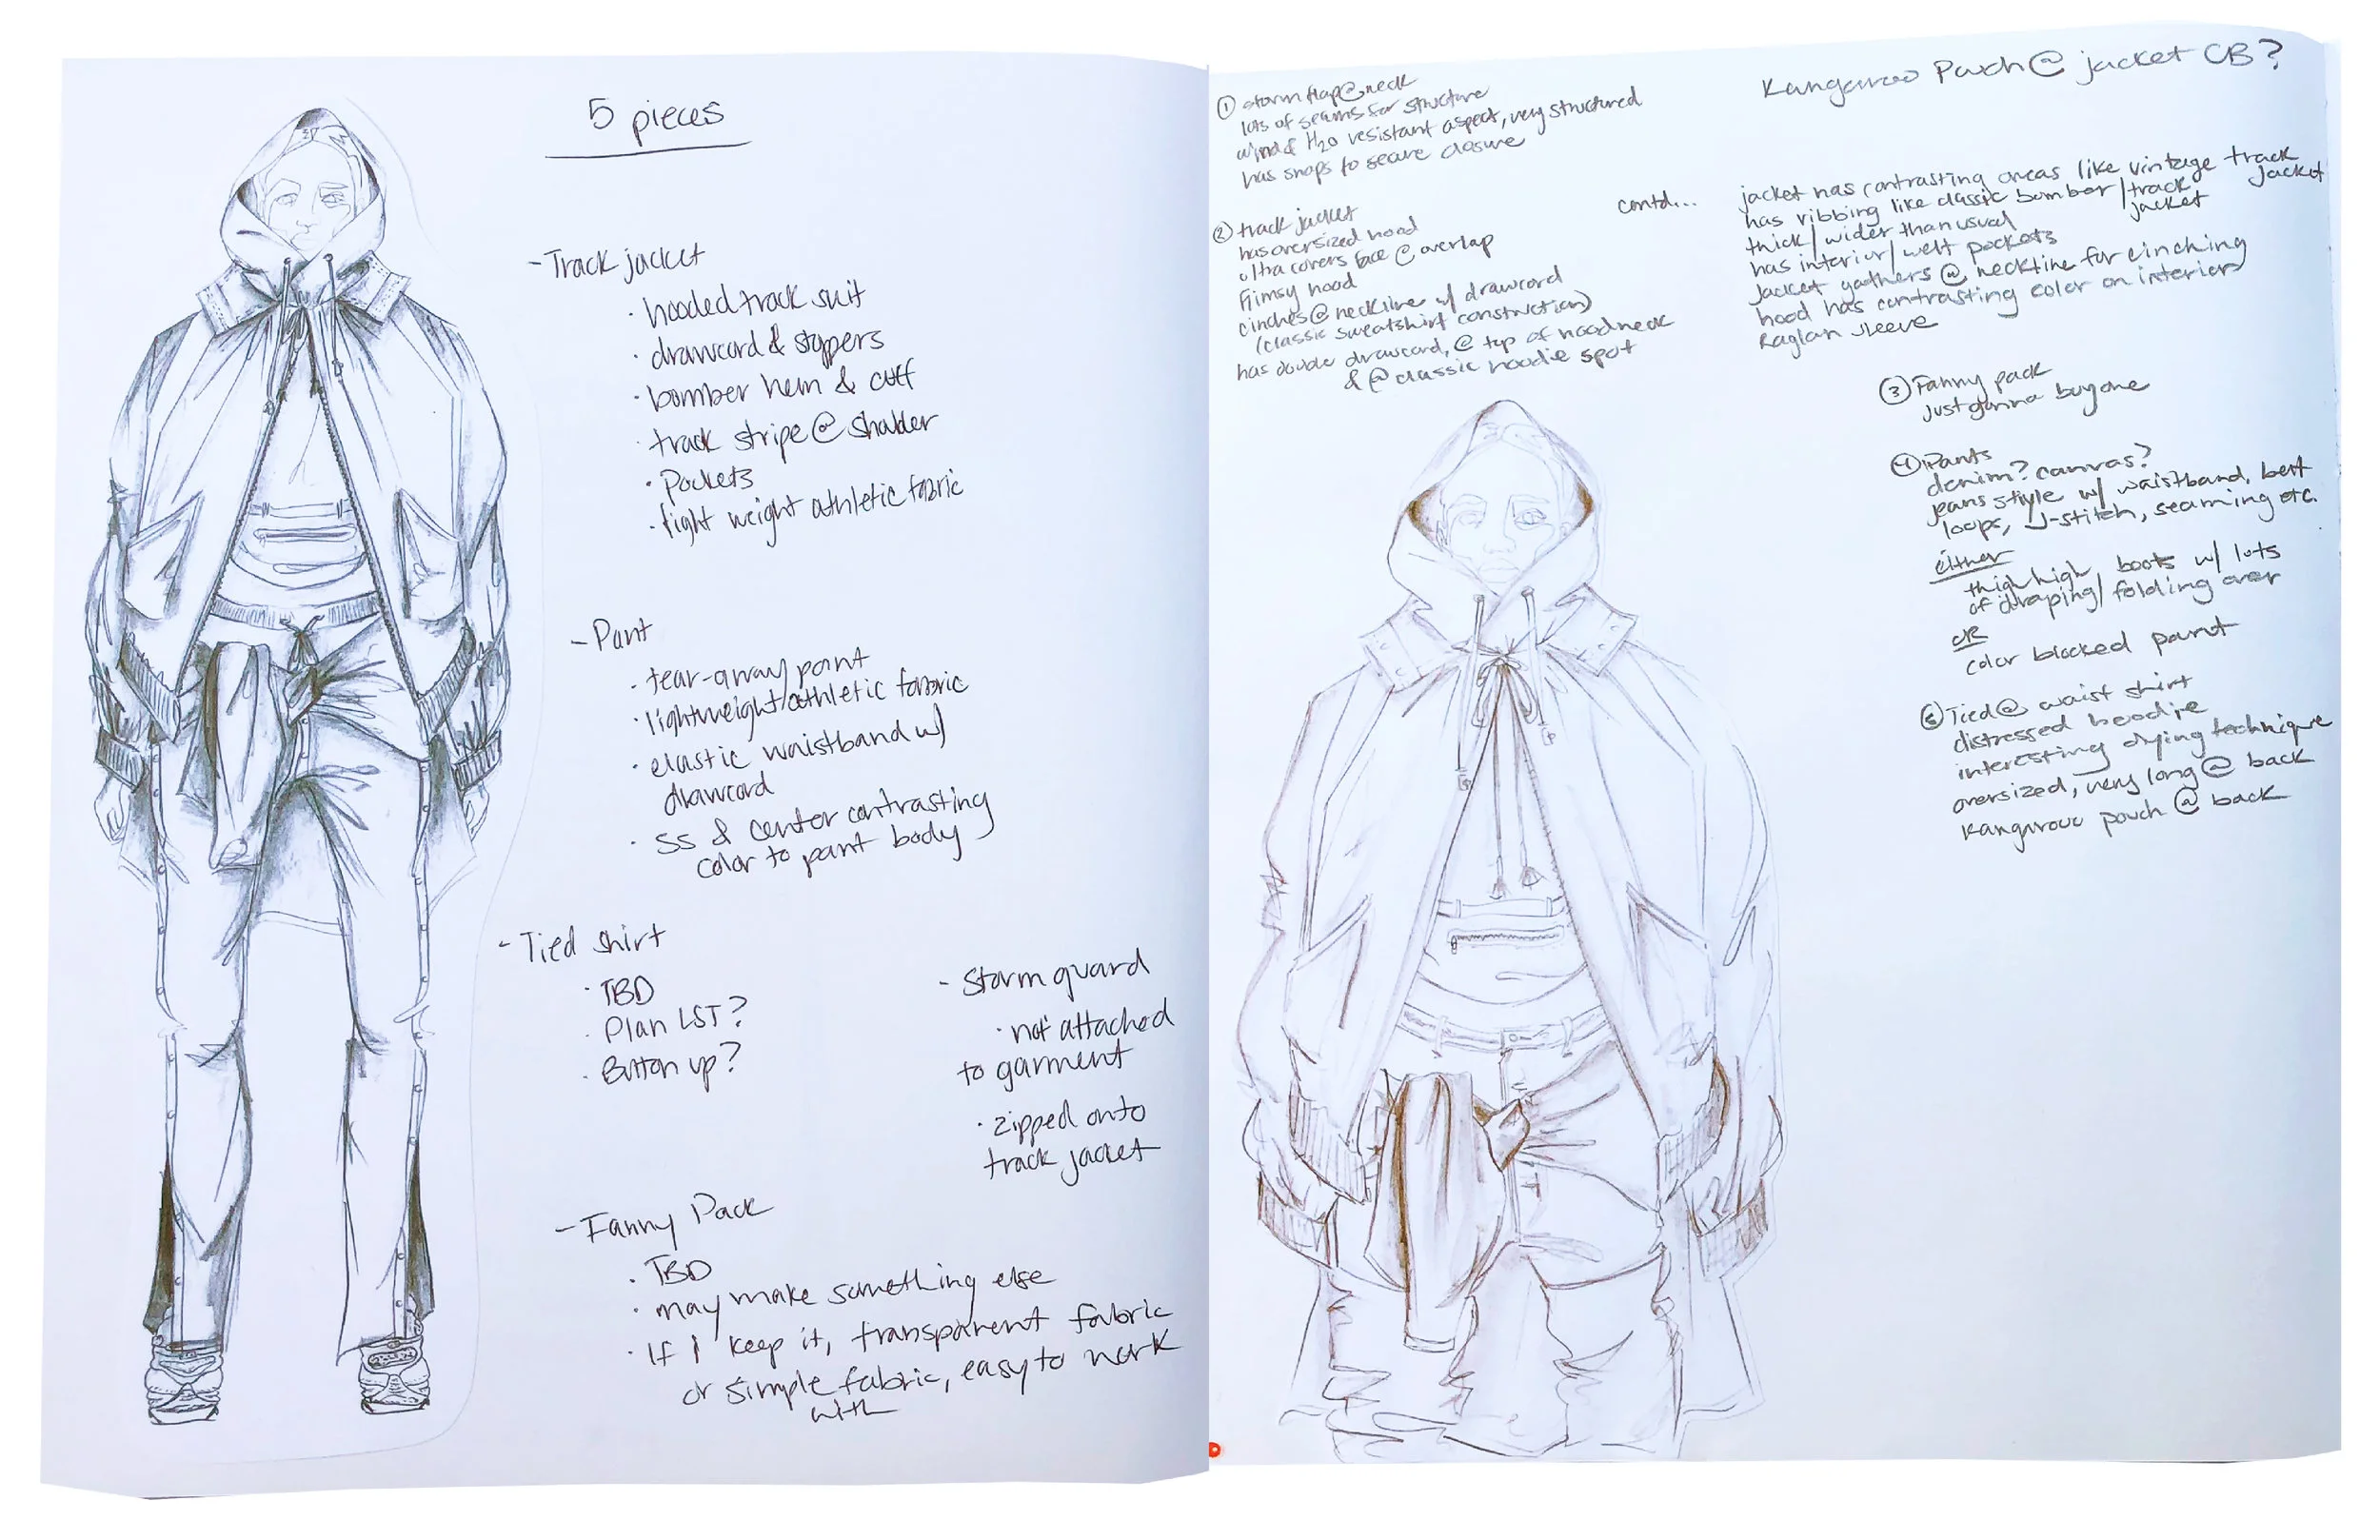 5 pieces
- Track jacket
· hooded track suit
· drawcord & stoppers
· bomber hem & cuff
· track stripe @ shoulder
· Pockets
· light weight athletic fabric
- Pant
· tear-away pant
· lightweight/athletic fabric
· elastic waistband w/
drawcord
· SS & center contrasting
color to pant body
- Tied shirt
· TBD
· Plan LST?
· Button up?
- Storm guard
· not attached
to garment
· zipped onto
track jacket
- Fanny Pack
· TBD
· may make something else
· If I keep it, transparent fabric
or simple fabric, easy to work
with
① storm flap @ neck
lots of seams for structure
wind & H2O resistant aspect, very structured
has snaps to secure closure
② track jacket
has oversized hood
ultra covers face @ overlap
flimsy hood
cinches @ neckline w/ drawcord
(classic sweatshirt construction)
has double drawcord, @ top of hood neck
& @ classic hoodie spot
Kangaroo Pouch @ jacket CB?
contd...
jacket has contrasting areas like vintage track jacket
has ribbing like classic bomber/track jacket
thick/wider than usual
has interior/welt pockets
Jacket gathers @ neckline for cinching
hood has contrasting color on interior
Raglan sleeve
③ Fanny pack
just gonna buy one
④ Pants
denim? canvas?
jeans style w/ waistband, belt
loops, J-stitch, seaming etc.
either
thigh high boots w/ lots
of draping/folding over
OR
color blocked pant
⑤ Tied @ waist shirt
distressed hoodie
interesting dying technique
oversized, very long @ back
Kangaroo pouch @ back